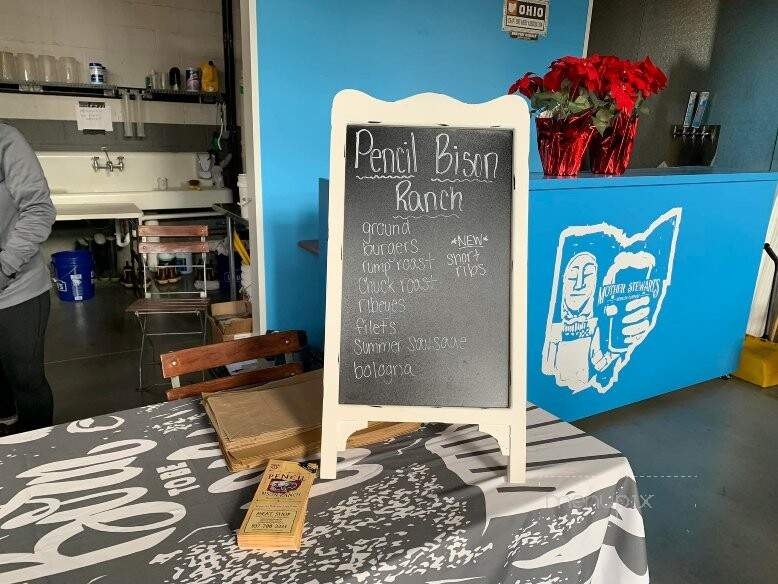 OHIO
Pencil Bison
Ranch
ground
burgers
rump roast
Chuck roast
ribeyes
filets
summer sausage
bologna
*NEW*
short
ribs
MOTHER STEWART'S
PENCIL
BISON RANCH
MEAT SHOP
menupix